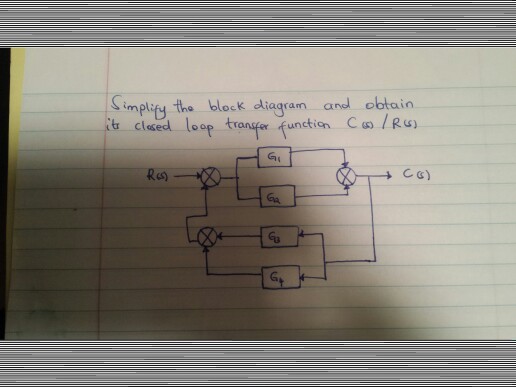 Simplify the block diagram and obtain
its closed loop transfer function C(s) / R(s)
G1
R(s) C(s)
G2
G3
G4